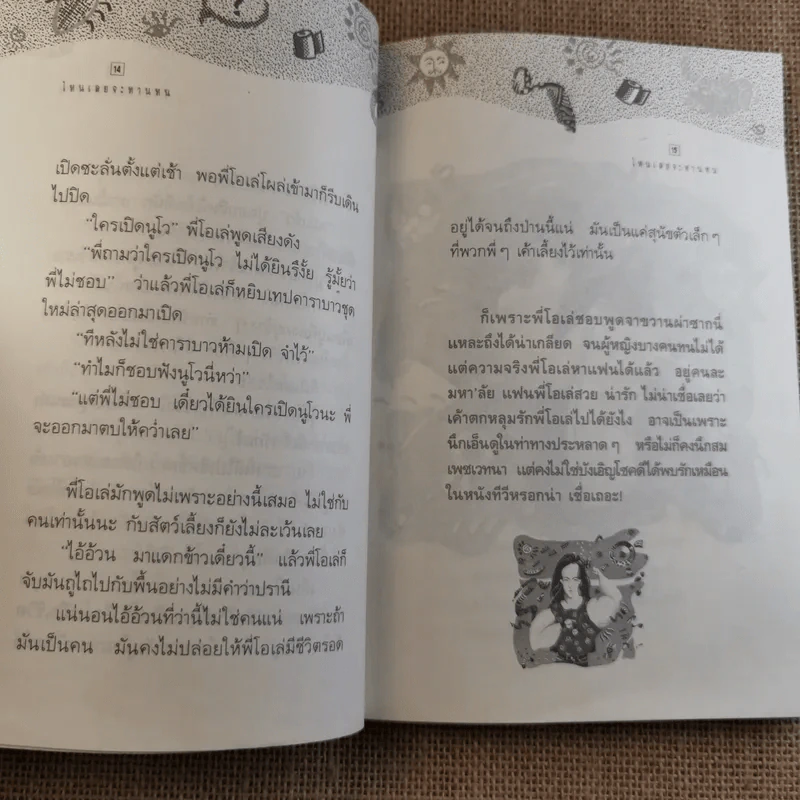 14
ไหนเลยจะทานทน
เปิดซะลั่นตั้งแต่เช้า พอพี่โอเล่โผล่เข้ามาก็รีบเดิน
ไปปิด
"ใครเปิดนูโว" พี่โอเล่พูดเสียงดัง
"พี่ถามว่าใครเปิดนูโว ไม่ได้ยินรึงั้ย รู้มั้ยว่า
พี่ไม่ชอบ" ว่าแล้วพี่โอเล่ก็หยิบเทปคาราบาวชุด
ใหม่ล่าสุดออกมาเปิด
"ทีหลังไม่ใช่คาราบาวห้ามเปิด จำไว้"
"ทำไมก็ชอบฟังนูโวนี่หว่า"
"แต่พี่ไม่ชอบ เดี๋ยวได้ยินใครเปิดนูโวนะ พี่
จะออกมาตบให้คว่ำเลย"
พี่โอเล่มักพูดไม่เพราะอย่างนี้เสมอ ไม่ใช่กับ
คนเท่านั้นนะ กับสัตว์เลี้ยงก็ยังไม่ละเว้นเลย
"ไอ้อ้วน มาแดกข้าวเดี๋ยวนี้" แล้วพี่โอเล่ก็
จับมันถูไถไปกับพื้นอย่างไม่มีคำว่าปรานี
แน่นอนไอ้อ้วนที่ว่านี้ไม่ใช่คนแน่ เพราะถ้า
มันเป็นคน มันคงไม่ปล่อยให้พี่โอเล่มีชีวิตรอด
15
ไหนเลยจะทานทน
อยู่ได้จนถึงป่านนี้แน่ มันเป็นแค่สุนัขตัวเล็กๆ
ที่พวกพี่ๆ เค้าเลี้ยงไว้เท่านั้น
ก็เพราะพี่โอเล่ชอบพูดจาขวานผ่าซากนี่
แหละถึงได้น่าเกลียด จนผู้หญิงบางคนทนไม่ได้
แต่ความจริงพี่โอเล่หาแฟนได้แล้ว อยู่คนละ
มหา'ลัย แฟนพี่โอเล่สวย น่ารัก ไม่น่าเชื่อเลยว่า
เค้าตกหลุมรักพี่โอเล่ไปได้ยังไง อาจเป็นเพราะ
นึกเอ็นดูในท่าทางประหลาดๆ หรือไม่ก็คงนึกสม
เพชเวทนา แต่คงไม่ใช่บังเอิญโชคดีได้พบรักเหมือน
ในหนังทีวีหรอกน่า เชื่อเถอะ!